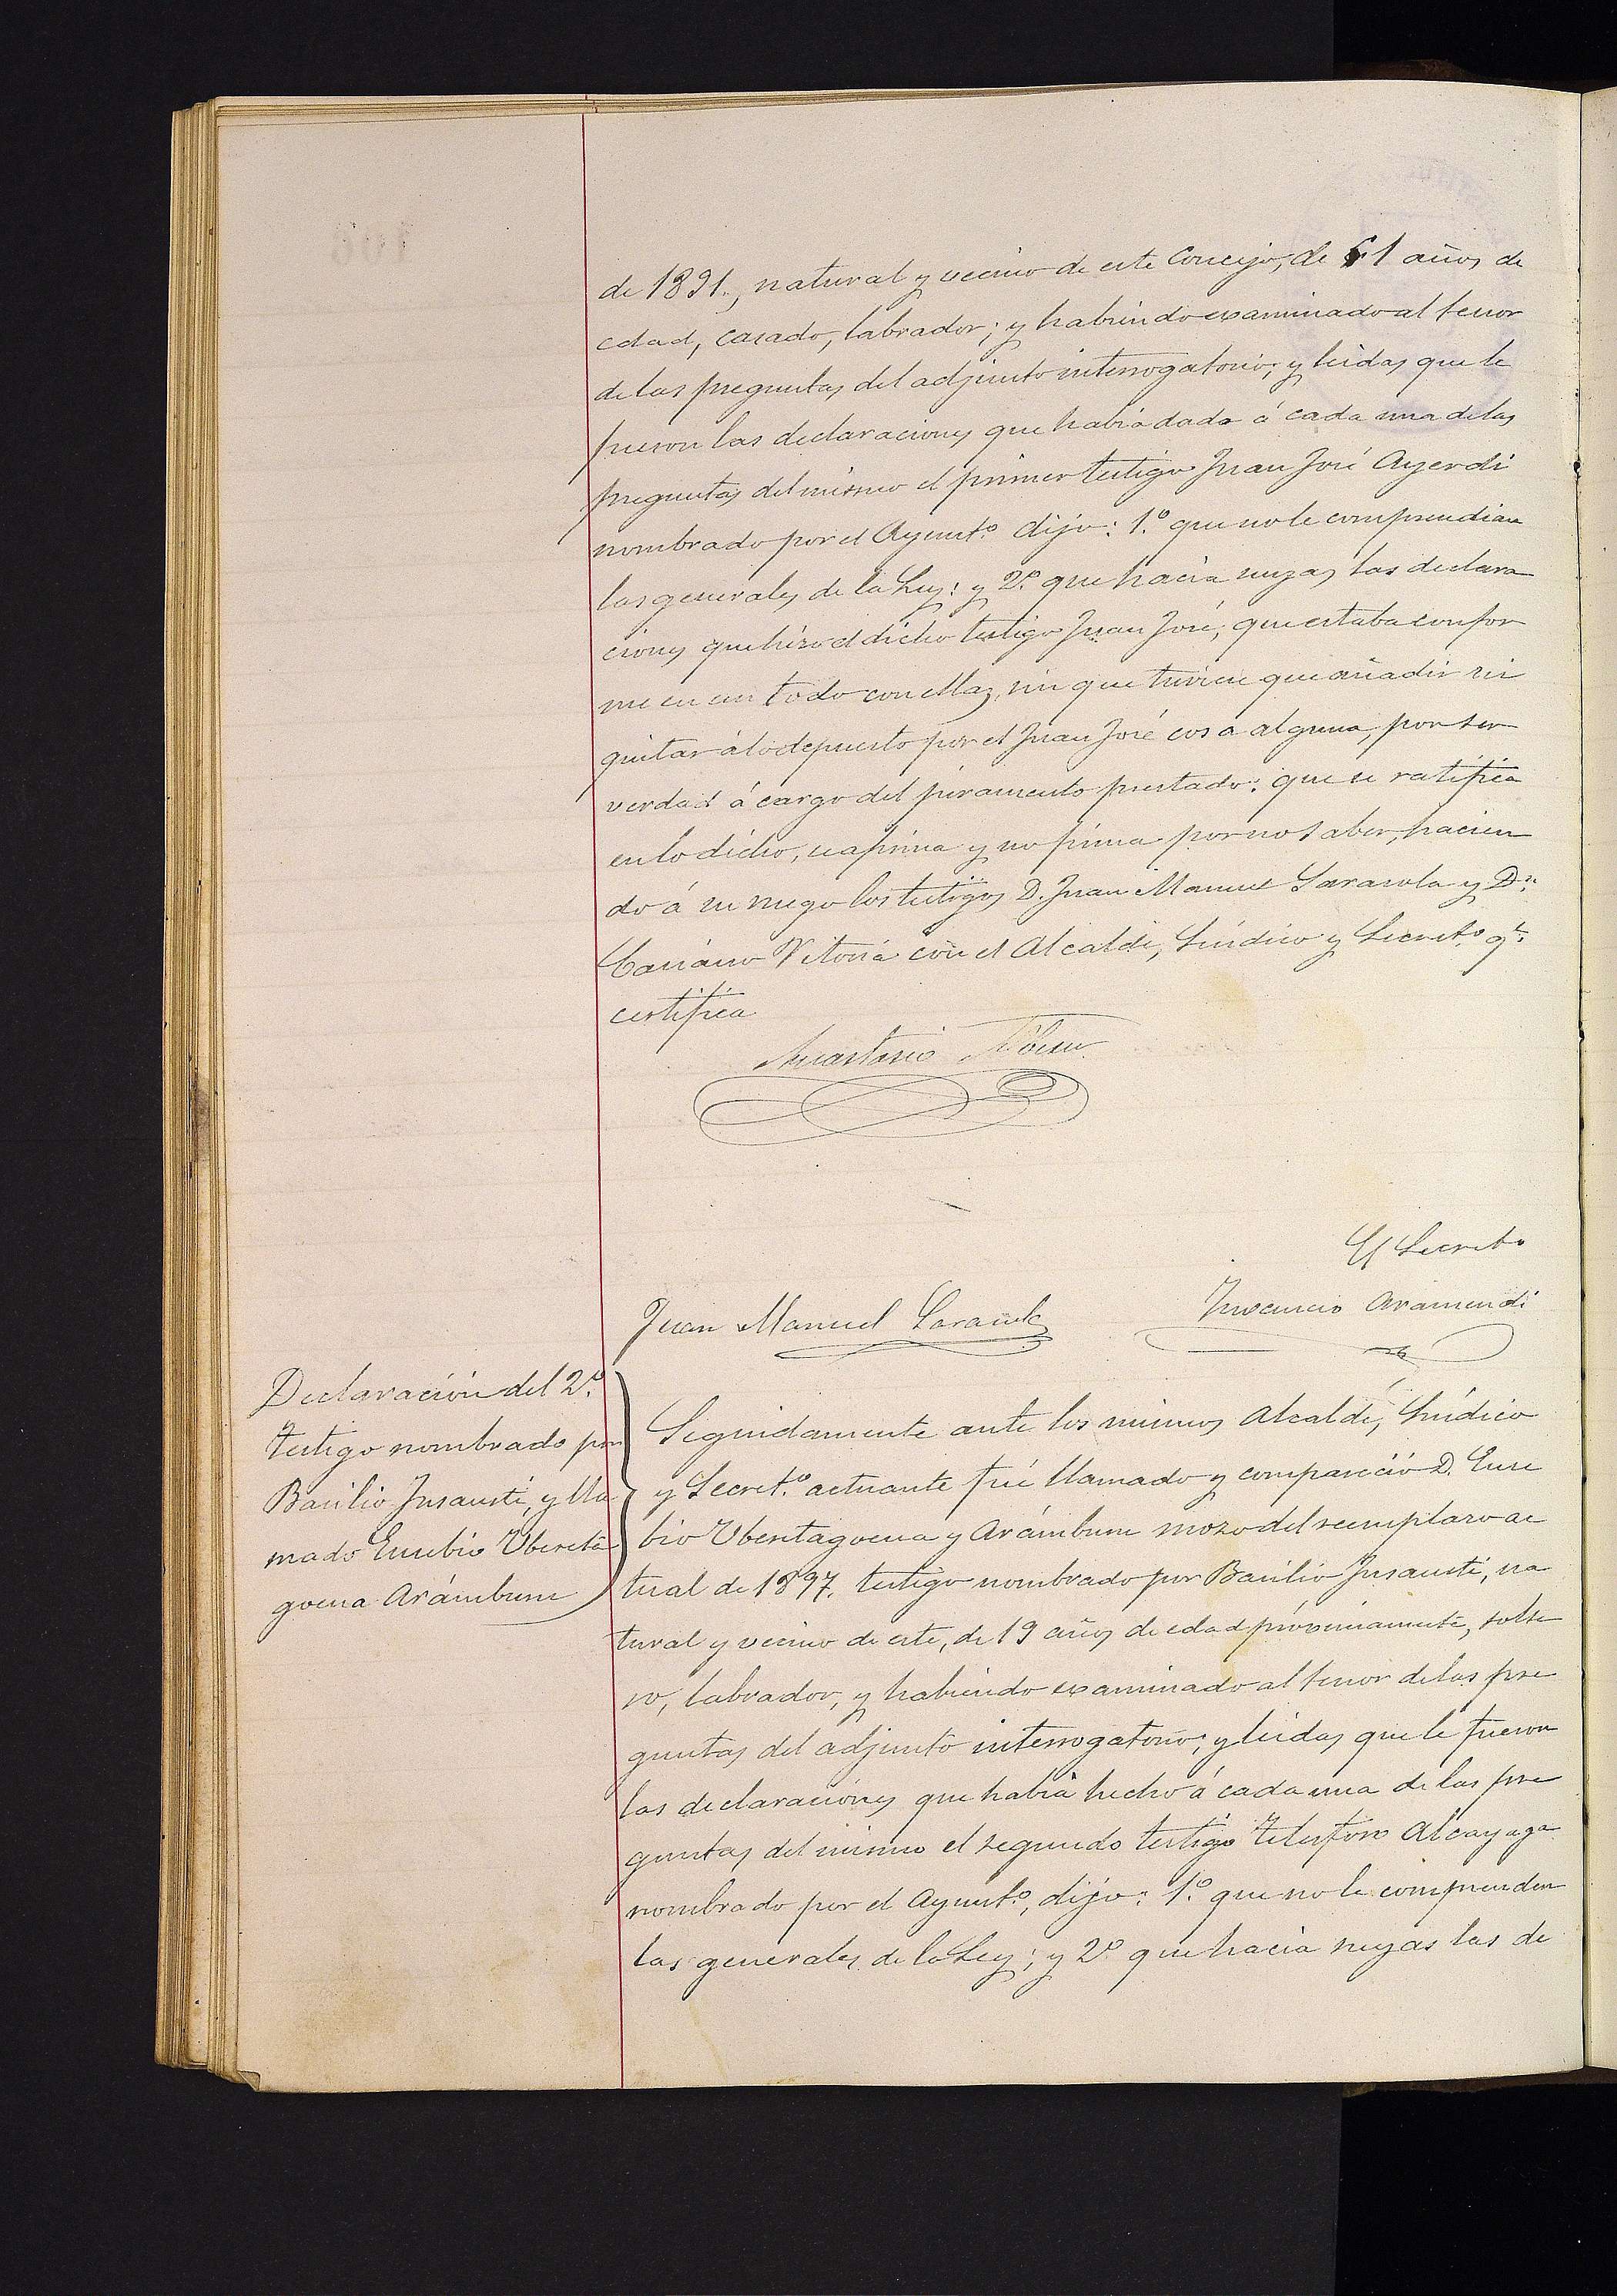 de 1891., natural y vecino de este Concejo, de 61 años de
edad, casado, labrador; y habiendo examinado al tenor
de las preguntas del adjunto interrogatorio; y leidas que le
fueron las declaraciones que había dado á cada una de las
preguntas del mismo el primer testigo Juan José Ayerdi
nombrado por el Ayunt.º dijo: 1.º que no le comprendian
las generales de la Ley: y 2.º que hacía suyas las declara
ciones que hizo el dicho testigo Juan José, que estaba confor
me en un todo con ellas, sin que tuviese que añadir ni
quitar á lo depuesto por el Juan José cosa alguna, por ser
verdad á cargo del juramento prestado: que se ratifica
en lo dicho, se afirma y no firma por no saber, hacien
do á su ruego los testigos D. Juan Manuel Sarasola y D.n
Vitoria con el Alcalde, Síndico y Secret.º q.e
certifica
Anastasio
El Secret.º
Juan Manuel Sarasola
Inocencio Aramendi
Declaración del 2.º
testigo nombrado por
Basilio Insausti, y lla
mado Eusebio Ubereta
goena Arámburu
Seguidamente ante los mismos Alcalde, Síndico
y Secret.º actuante fué llamado y compareció D. Euse
bio Uberetagoena y Arámburu mozo del reemplazo ac
tual de 1897. testigo nombrado por Basilio Insausti, na
tural y vecino de este, de 19 años de edad próximamente, solte
ro, labrador, y habiendo examinado al tenor de las pre
guntas del adjunto interrogatorio; y leidas que le fueron
las declaraciones que había hecho á cada una de las pre
guntas del mismo el segundo testigo Telesforo Alcayaga
nombrado por el Ayunt.º, dijo: 1.º que no le comprenden
las generales de la Ley; y 2.º que hacía suyas las de